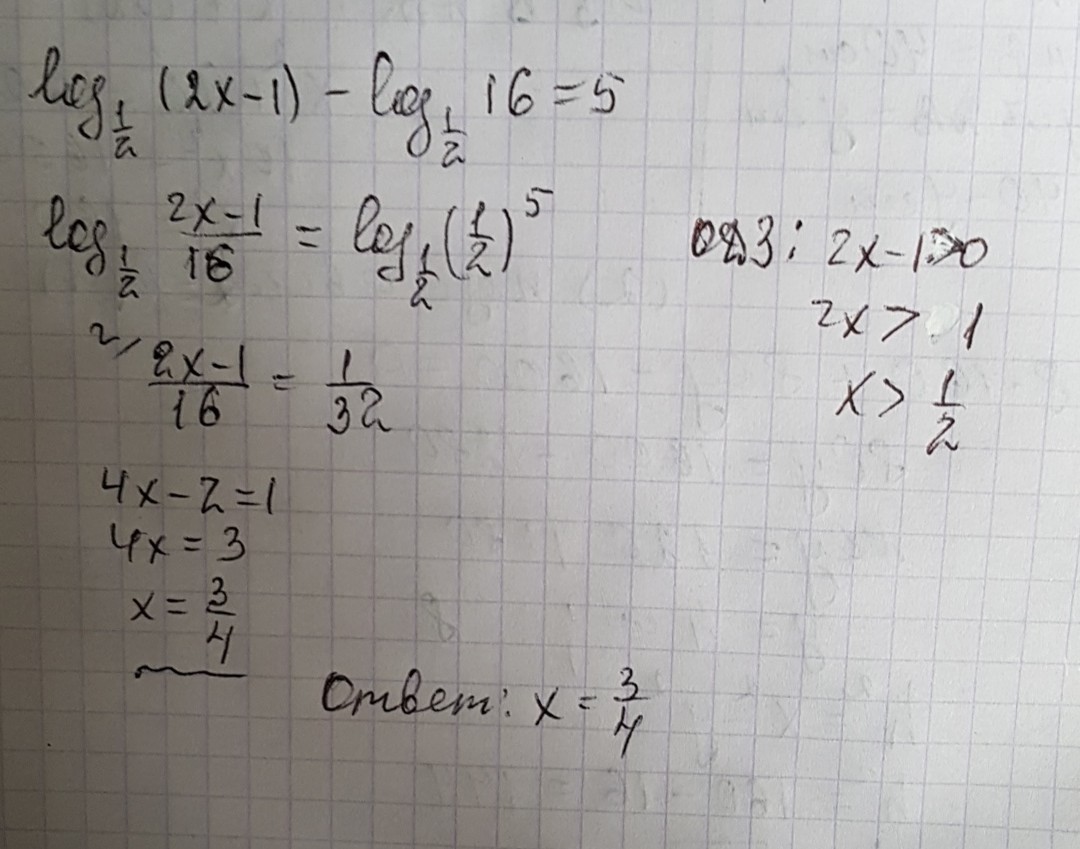 log_{1/2} (2x-1) - log_{1/2} 16 = 5
log_{1/2} (2x-1)/16 = log_{1/2} (1/2)^5
ОДЗ: 2x-1>0
2x > 1
x > 1/2
(2x-1)/16 = 1/32
4x-2=1
4x = 3
x = 3/4
Ответ: x = 3/4